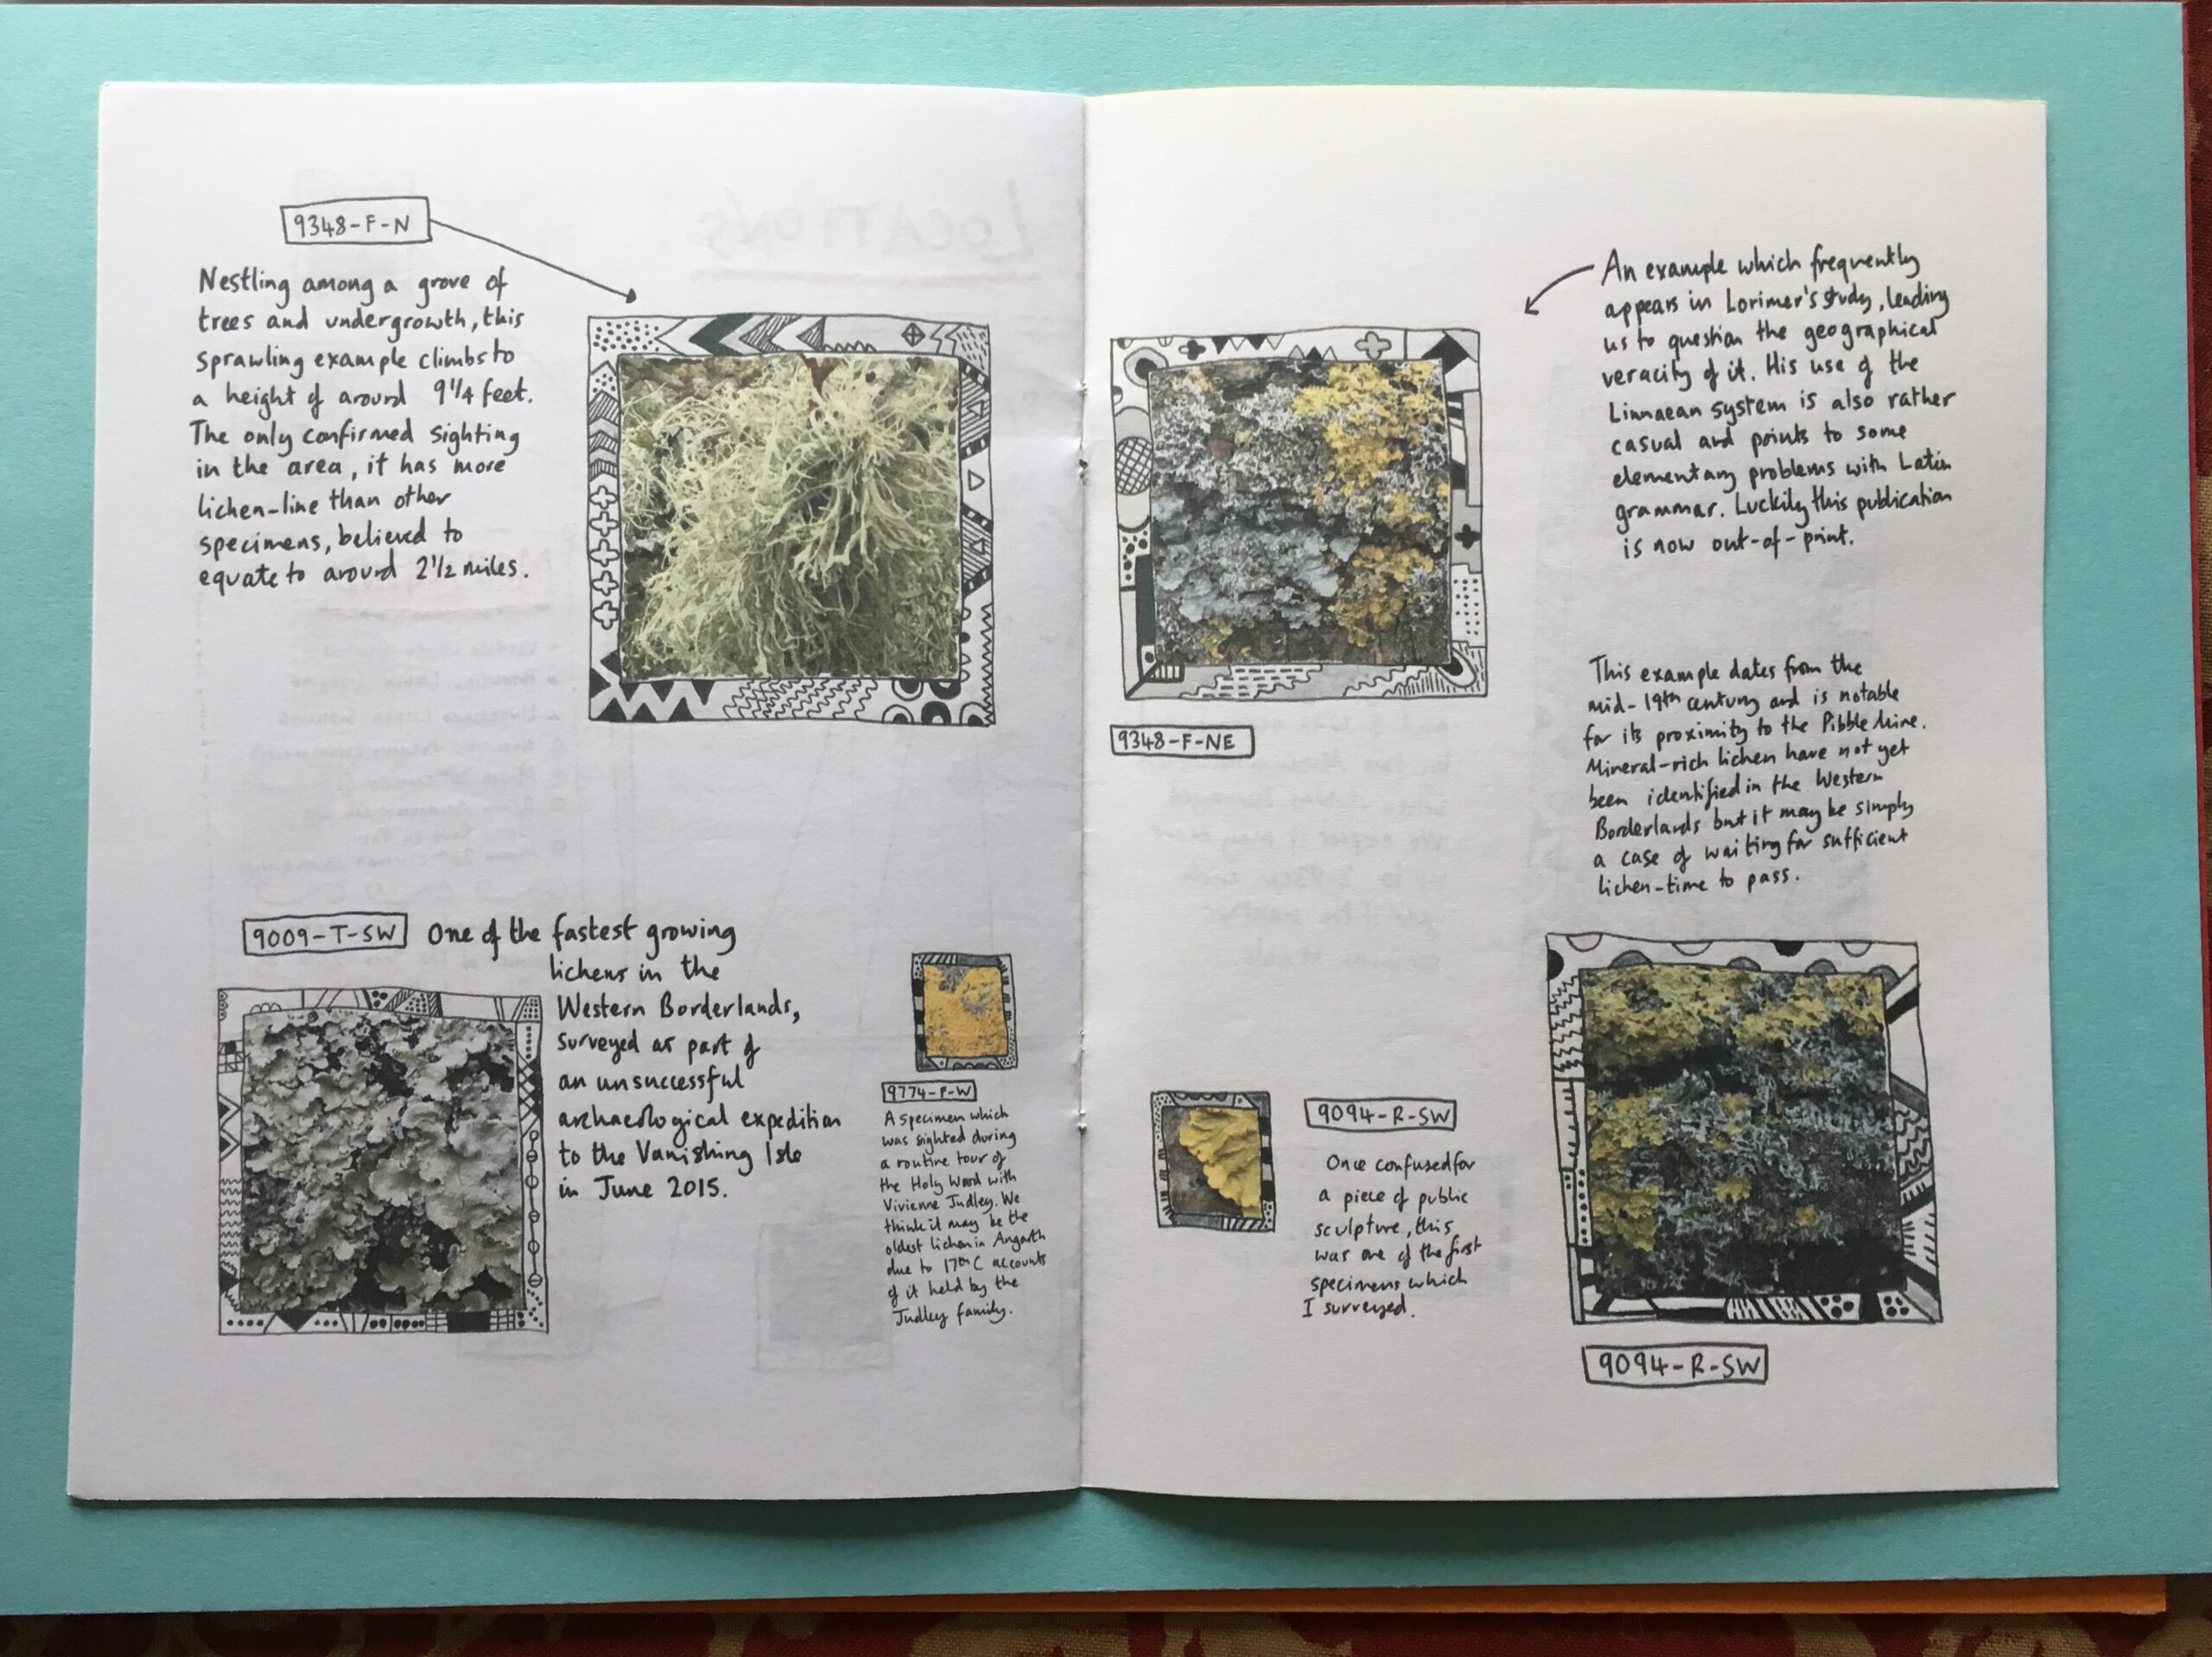 9348-F-N
Nestling among a grove of
trees and undergrowth, this
sprawling example climbs to
a height of around 9 1/4 feet.
The only confirmed sighting
in the area, it has more
lichen-line than other
specimens, believed to
equate to around 2 1/2 miles.
9009-T-SW
One of the fastest growing
lichens in the
Western Borderlands,
surveyed as part of
an unsuccessful
archaeological expedition
to the Vanishing Isle
in June 2015.
9774-F-W
A specimen which
was sighted during
a routine tour of
the Holy Word with
Vivienne Judley. We
think it may be the
oldest lichen in Angarth
due to 17th C accounts
of it held by the
Judley family.
An example which frequently
appears in Lorimer's study, leading
us to question the geographical
veracity of it. His use of the
Linnaean system is also rather
casual and points to some
elementary problems with Latin
grammar. Luckily this publication
is now out-of-print.
9348-F-NE
This example dates from the
mid-19th century and is notable
for its proximity to the Pibble Mine.
Mineral-rich lichen have not yet
been identified in the Western
Borderlands but it may be simply
a case of waiting for sufficient
lichen-time to pass.
9094-R-SW
Once confused for
a piece of public
sculpture, this
was one of the first
specimens which
I surveyed.
9094-R-SW
LOCATIONS